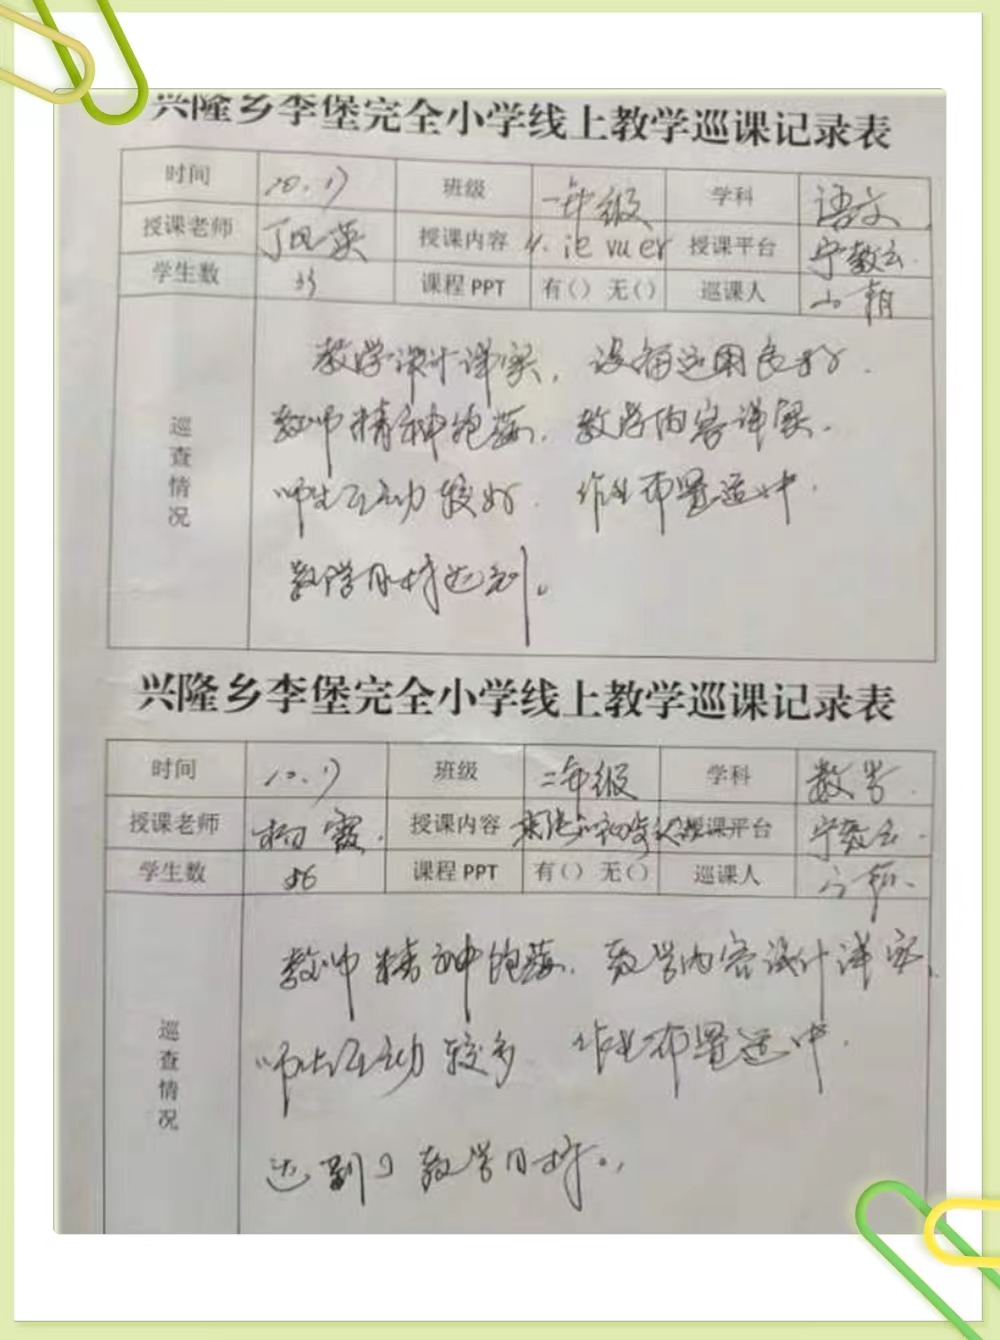 兴隆乡李堡完全小学线上教学巡课记录表
时间 10.17 班级 一年级 学科 语文
授课老师 丁凤英 授课内容 ie üe er 授课平台 宁教云
学生数 课程PPT 有（）无（） 巡课人
巡查情况
教学设计详实，设备运用良好.
教师精神饱满. 教学内容详实.
师生互动较好. 作业布置适中.
教学目标达到。
兴隆乡李堡完全小学线上教学巡课记录表
时间 10.17 班级 二年级 学科 数学
授课老师 杨霞 授课内容 授课平台 宁教云
学生数 36 课程PPT 有（）无（） 巡课人
巡查情况
教师精神饱满. 教学内容设计详实.
师生互动较多 作业布置适中.
达到了教学目标。